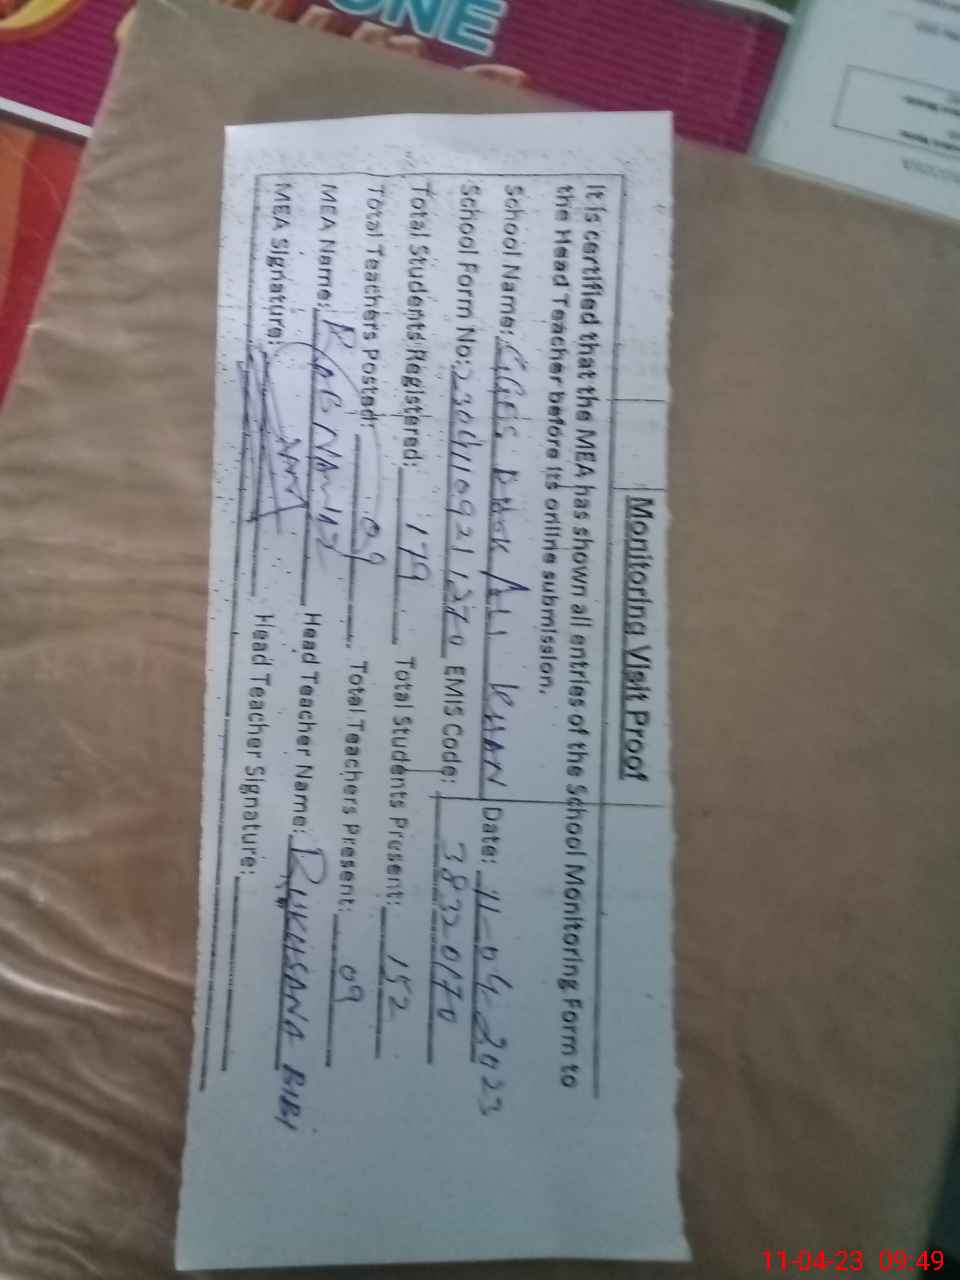 ONE
Monitoring Visit Proof
It is certified that the MEA has shown all entries of the School Monitoring Form to
the Head Teacher before its online submission.
School Name: GGES ALI KHAN Date: 11-04-2023
School Form No: EMIS Code: 38320170
Total Students Registered: 179 Total Students Present: 152
Total Teachers Posted: 09 Total Teachers Present: 09
MEA Name: RAB NAWAZ Head Teacher Name: RUKHSANA BIBI
MEA Signature: Head Teacher Signature:
11-04-23 09:49